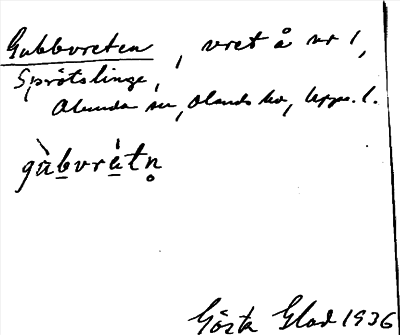 Gubbvreten, vret å nr 1,
Sprötslinge,
Alunda sn, Olands hd, Upps. l.
gùbvrètn̥
Gösta Glad 1936